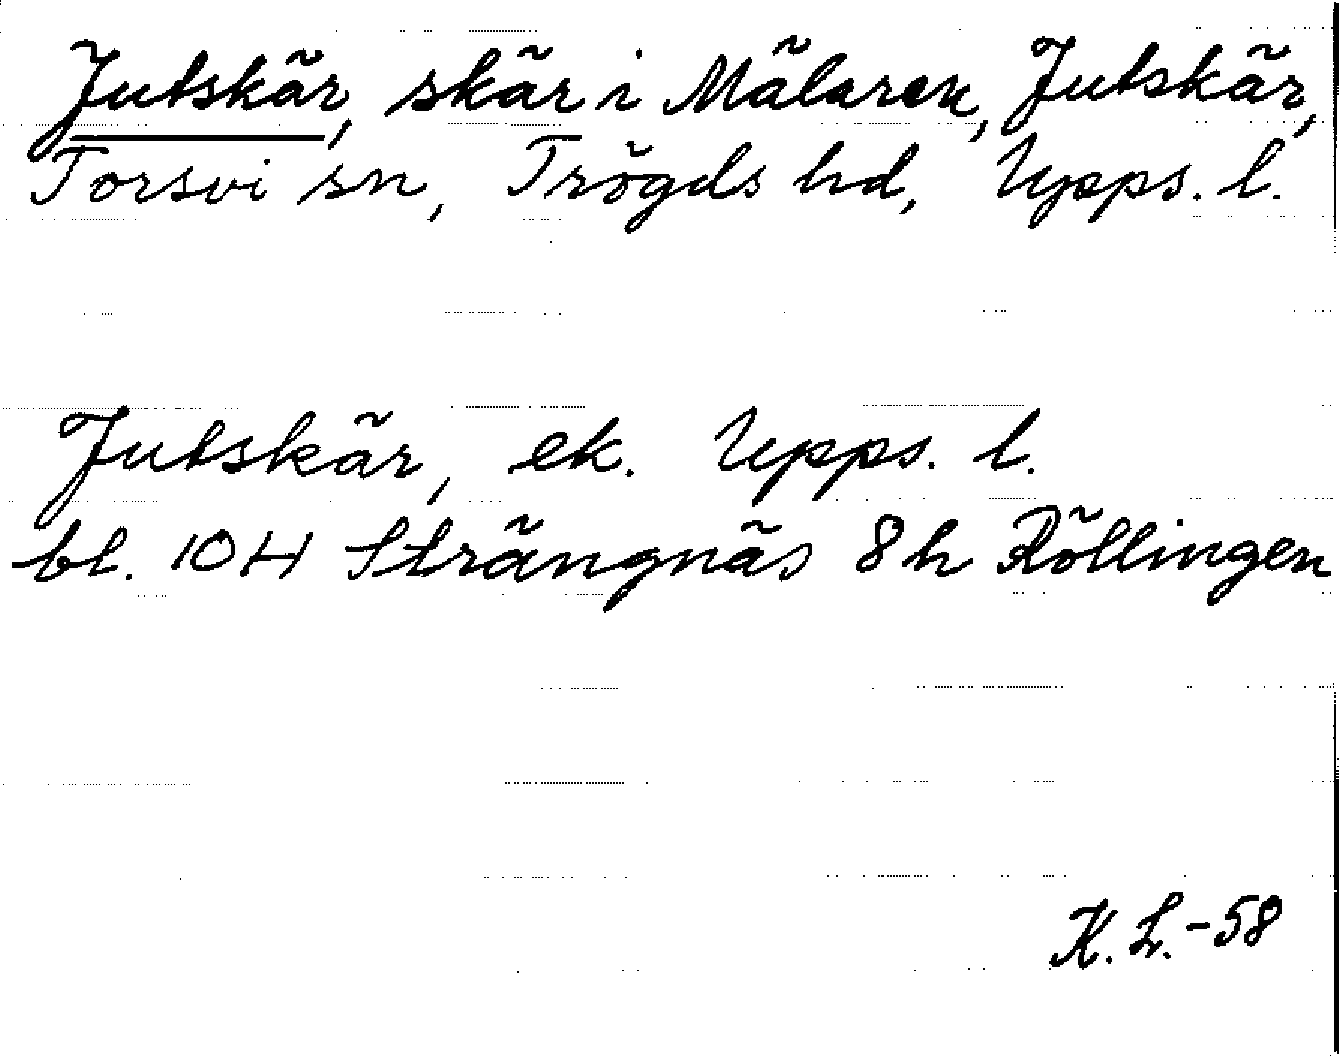 Jutskär, skär i Mälaren, Jutskär,
Torsvi sn, Trögds hd, Upps. l.
Jutskär, ek. Upps. l.
bl. 10H Strängnäs 8h Röllingen
K. L. -58